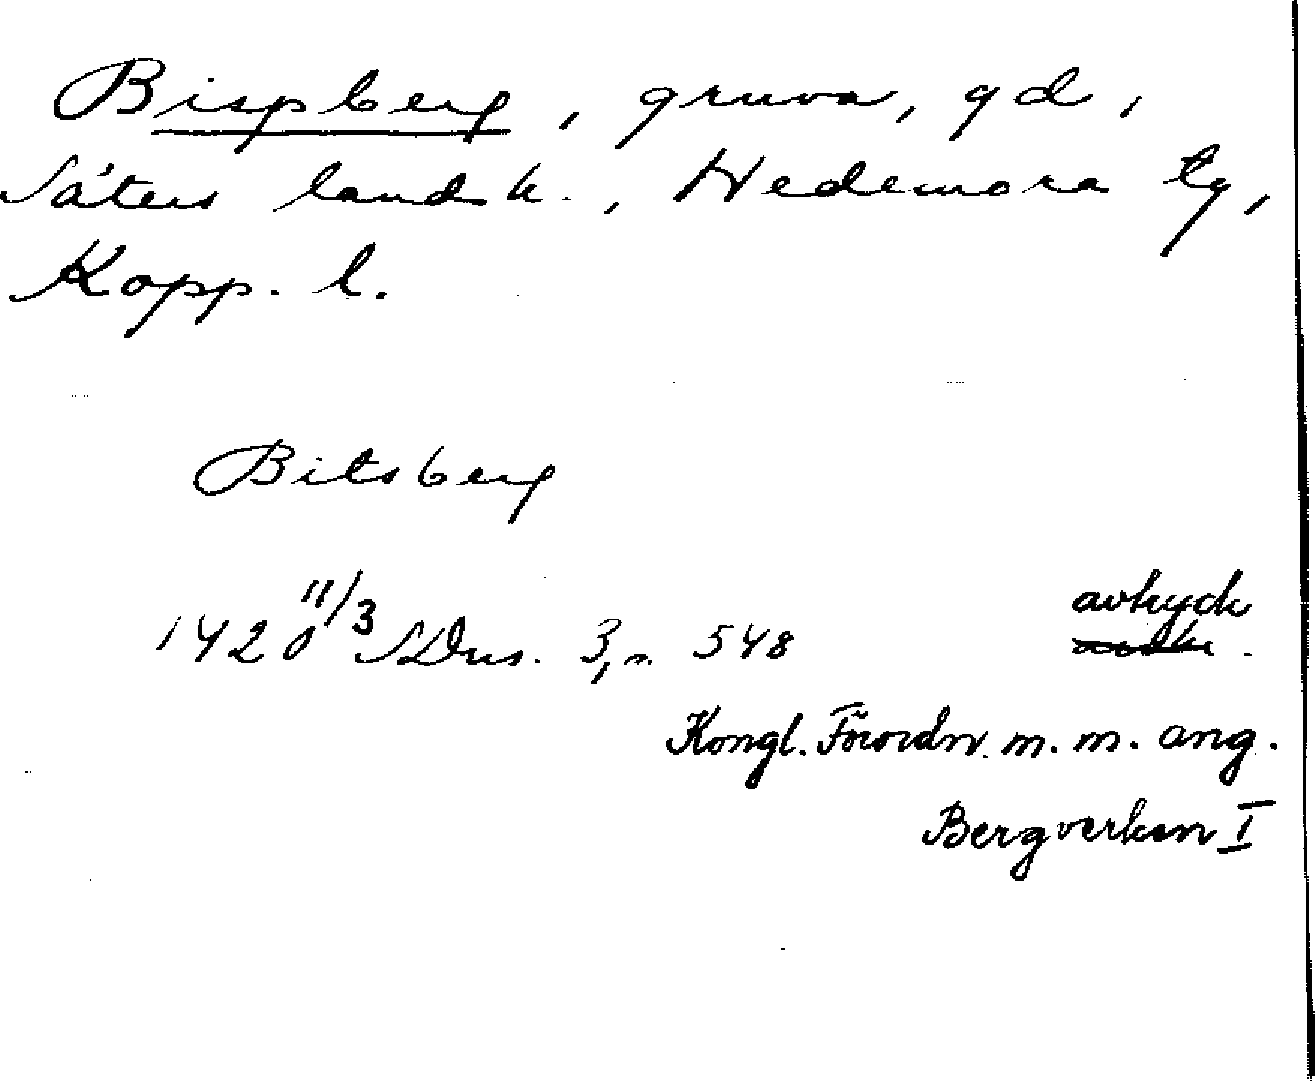 Bispberg, gruva, gd,
Säters landsk., Hedemora tg,
Kopp. l.
Bitsberg
1420 11/3 SDns. 3, s. 548
avtryck
Kongl. Förordn. m. m. ang.
Bergverken I